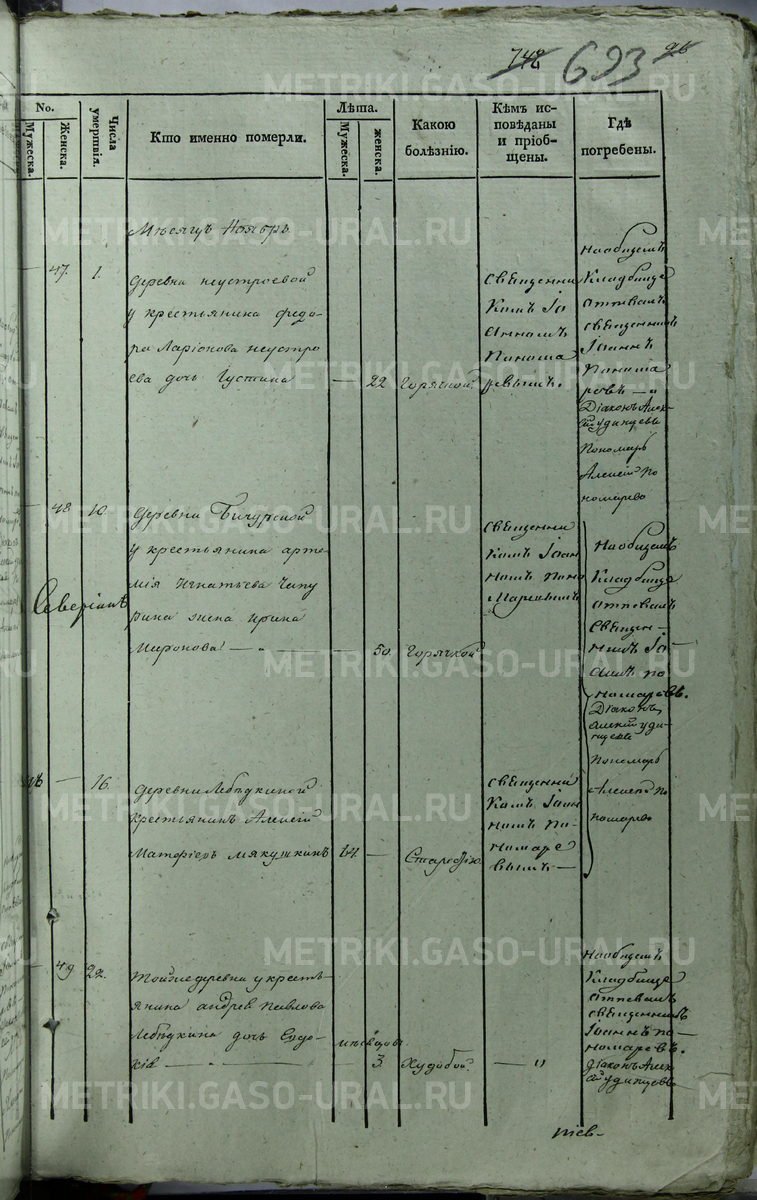 742 693 26
No.
Мужеска.
Женска.
Числа умертвія.
Кто именно померли.
Лѣта.
Мужеска.
женска.
Какою
болѣзнію.
Кѣмъ ис-
повѣданы
и пріоб-
щены.
Гдѣ
погребены.
Мѣсяцъ Ноябрь
47. 1.
Деревни неустроевой
у крестьянина федо
ра Ларіонова неустро
ева дочь Густина — 22 Горячкой
священни
комъ Іо
анномъ
Понома
ревымъ.
На общемъ
Кладбище
отпевалъ
священникъ
Іоаннъ
Понома
ревъ — "
Діаконъ Алек-
сѣй удинцевъ
Пономарь
Алексей По
номарево
48. 10.
Деревни Бичурской
у крестьянина арте-
мія Игнатьева Чепу
рина жена Ирина
Миронова — " — 50. Горячкой
Северіанъ
священни
комъ Іоан
номъ Поно
Маревымъ
На общемъ
Кладбище
отпевалъ
Священ-
никъ Іо-
аннъ По
номаревъ.
Діаконъ
алексѣй уди-
нцевъ
Пономарь
Алексей По
номарево
— 16.
Деревни Лебѣдкиной
крестьянинъ Алексій
Матфіевъ мякушкинъ 64. — Старостію
священни
комъ Іоан
номъ По-
номаре
вымъ —
49 22.
Той же деревни у кресть-
янина андрея Павлова
Лебѣдкина дочь Евдо-
кія — мѣсяцовъ 3. Худобой. — "
На общемъ
Кладбище
отпевалъ
священникъ
Іоаннъ По-
номаревъ.
діаконъ Алек
сѣй удинцевъ
METRIKI.GASO-URAL.RU